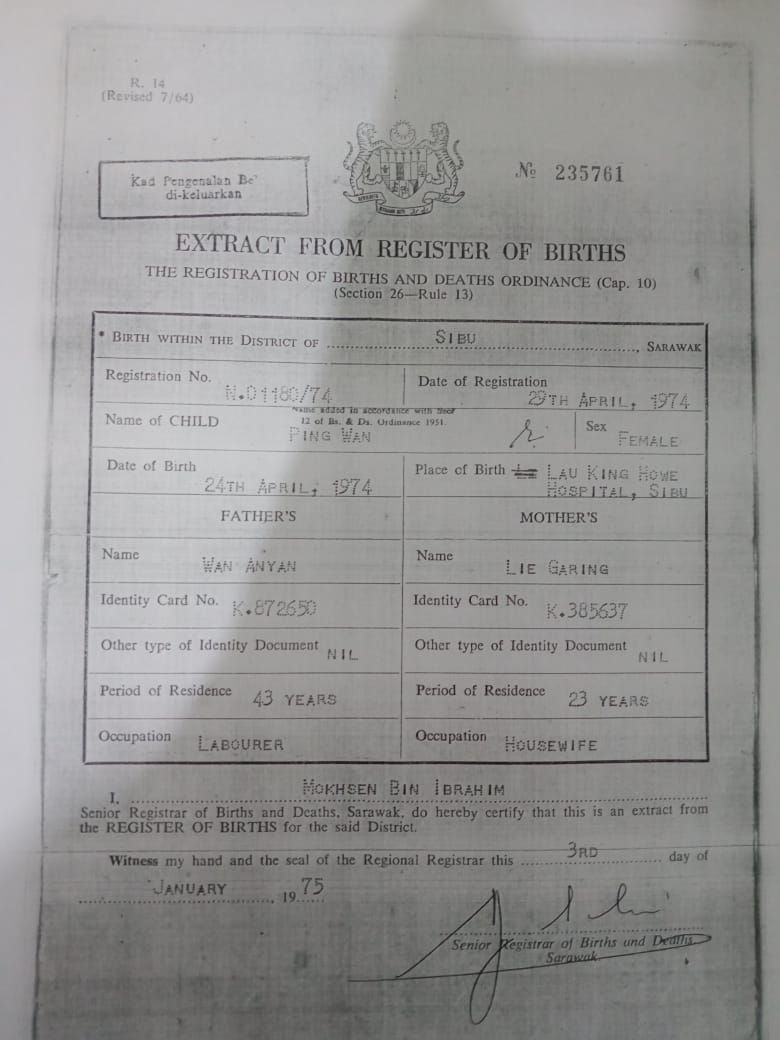 R. 14
(Revised 7/64)
Kad Pengenalan
di-keluarkan
№ 235761
EXTRACT FROM REGISTER OF BIRTHS
THE REGISTRATION OF BIRTHS AND DEATHS ORDINANCE (Cap. 10)
(Section 26—Rule 13)
* BIRTH WITHIN THE DISTRICT OF SIBU, SARAWAK
Registration No. N.01180/74
Date of Registration 29TH APRIL, 1974
Name of CHILD PING WAN
Name added in accordance with
12 of Bs. & Ds. Ordinance 1951.
Sex FEMALE
Date of Birth 24TH APRIL, 1974
Place of Birth LAU KING HOWE
HOSPITAL, SIBU
FATHER'S
MOTHER'S
Name WAN ANYAN
Name LIE GARING
Identity Card No. K.872650
Identity Card No. K.385637
Other type of Identity Document NIL
Other type of Identity Document NIL
Period of Residence 43 YEARS
Period of Residence 23 YEARS
Occupation LABOURER
Occupation HOUSEWIFE
I, MOKHSEN BIN IBRAHIM
Senior Registrar of Births and Deaths, Sarawak, do hereby certify that this is an extract from
the REGISTER OF BIRTHS for the said District.
Witness my hand and the seal of the Regional Registrar this 3RD day of
JANUARY, 1975
Senior Registrar of Births and Deaths,
Sarawak.